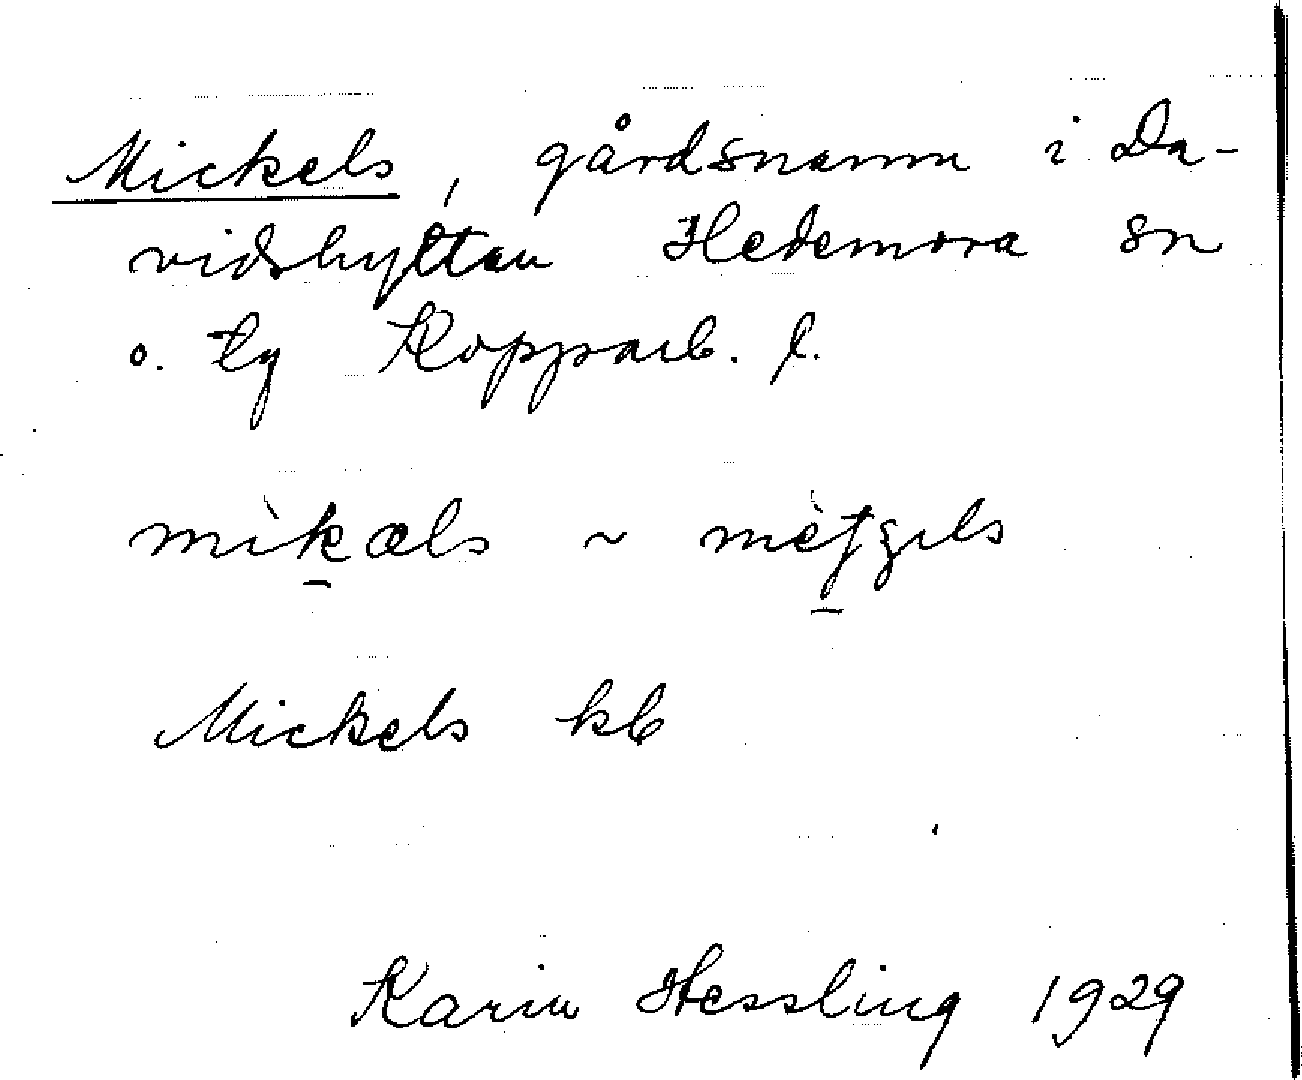 Mickels, gårdsnamn i Da-
vidshyttan Hedemora sn
o. tg Kopparb. l.
mìk̠æls ~
Mickels kb
Karin Hessling 1929